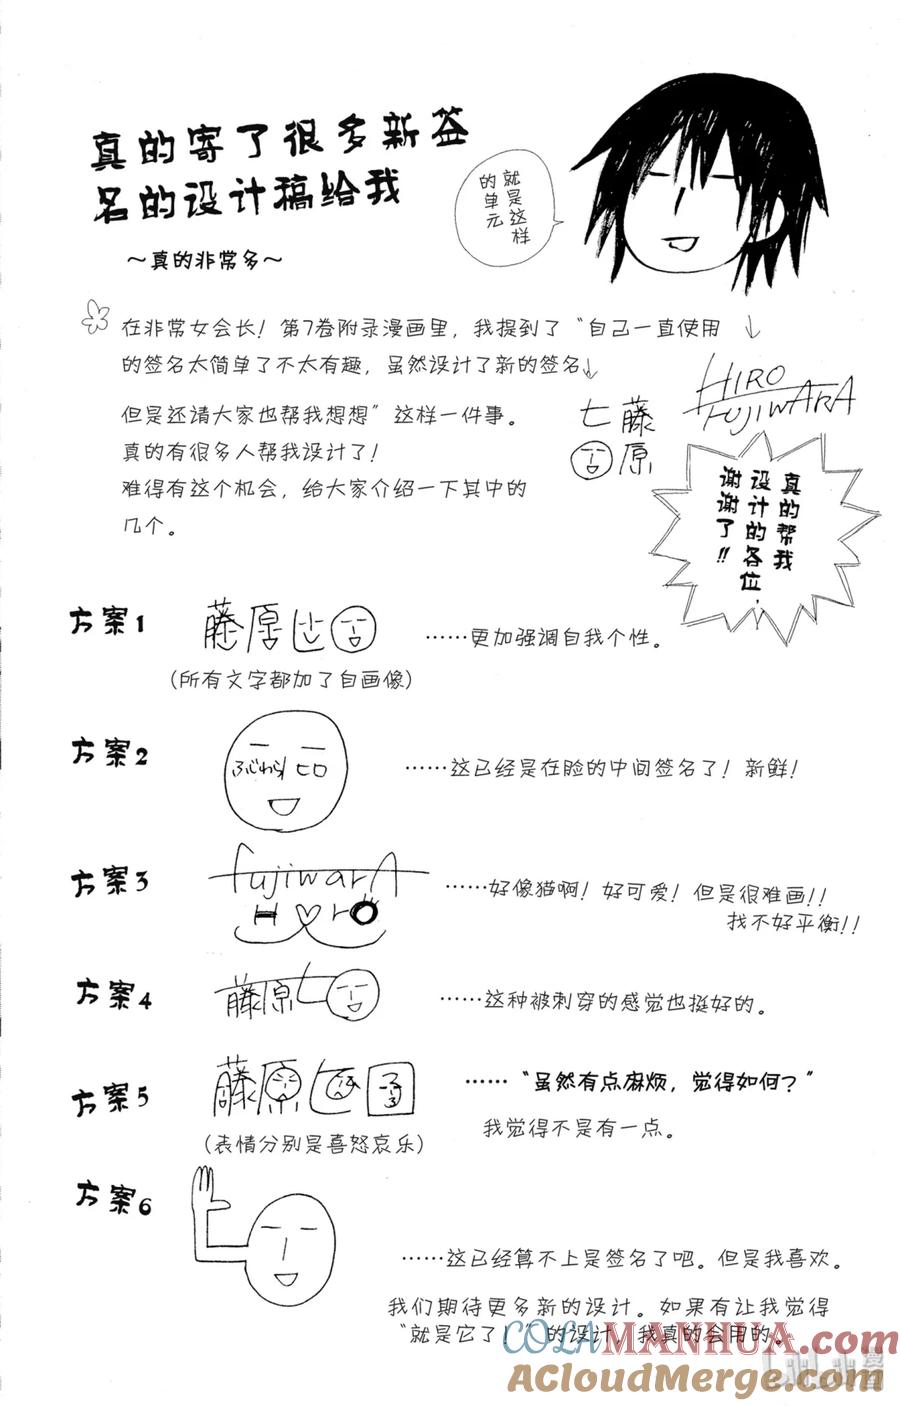 真的寄了很多新签
名的设计稿给我
～真的非常多～
就是这样
的单元
在非常女会长！第7卷附录漫画里，我提到了“自己一直使用↓
的签名太简单了不太有趣，虽然设计了新的签名↓
但是还请大家也帮我想想”这样一件事。
真的有很多人帮我设计了！
难得有这个机会，给大家介绍一下其中的
几个。
HIRO
FUJIWARA
藤
原
真的帮我
设计的各位，
谢谢了!!
方案1
藤原
……更加强调自我个性。
(所有文字都加了自画像)
方案2
ふじわら ヒロ
……这已经是在脸的中间签名了！新鲜！
方案3
fujiwarA
Hiro
……好像猫啊！好可爱！但是很难画!!
找不好平衡!!
方案4
藤原ヒ
……这种被刺穿的感觉也挺好的。
方案5
藤原ヒ
……“虽然有点麻烦，觉得如何？”
我觉得不是有一点。
(表情分别是喜怒哀乐)
方案6
……这已经算不上是签名了吧。但是我喜欢。
我们期待更多新的设计。如果有让我觉得
“就是它了！”的设计，我真的会用的。
COLAMANHUA.com
ACloudMerge.com
漫画